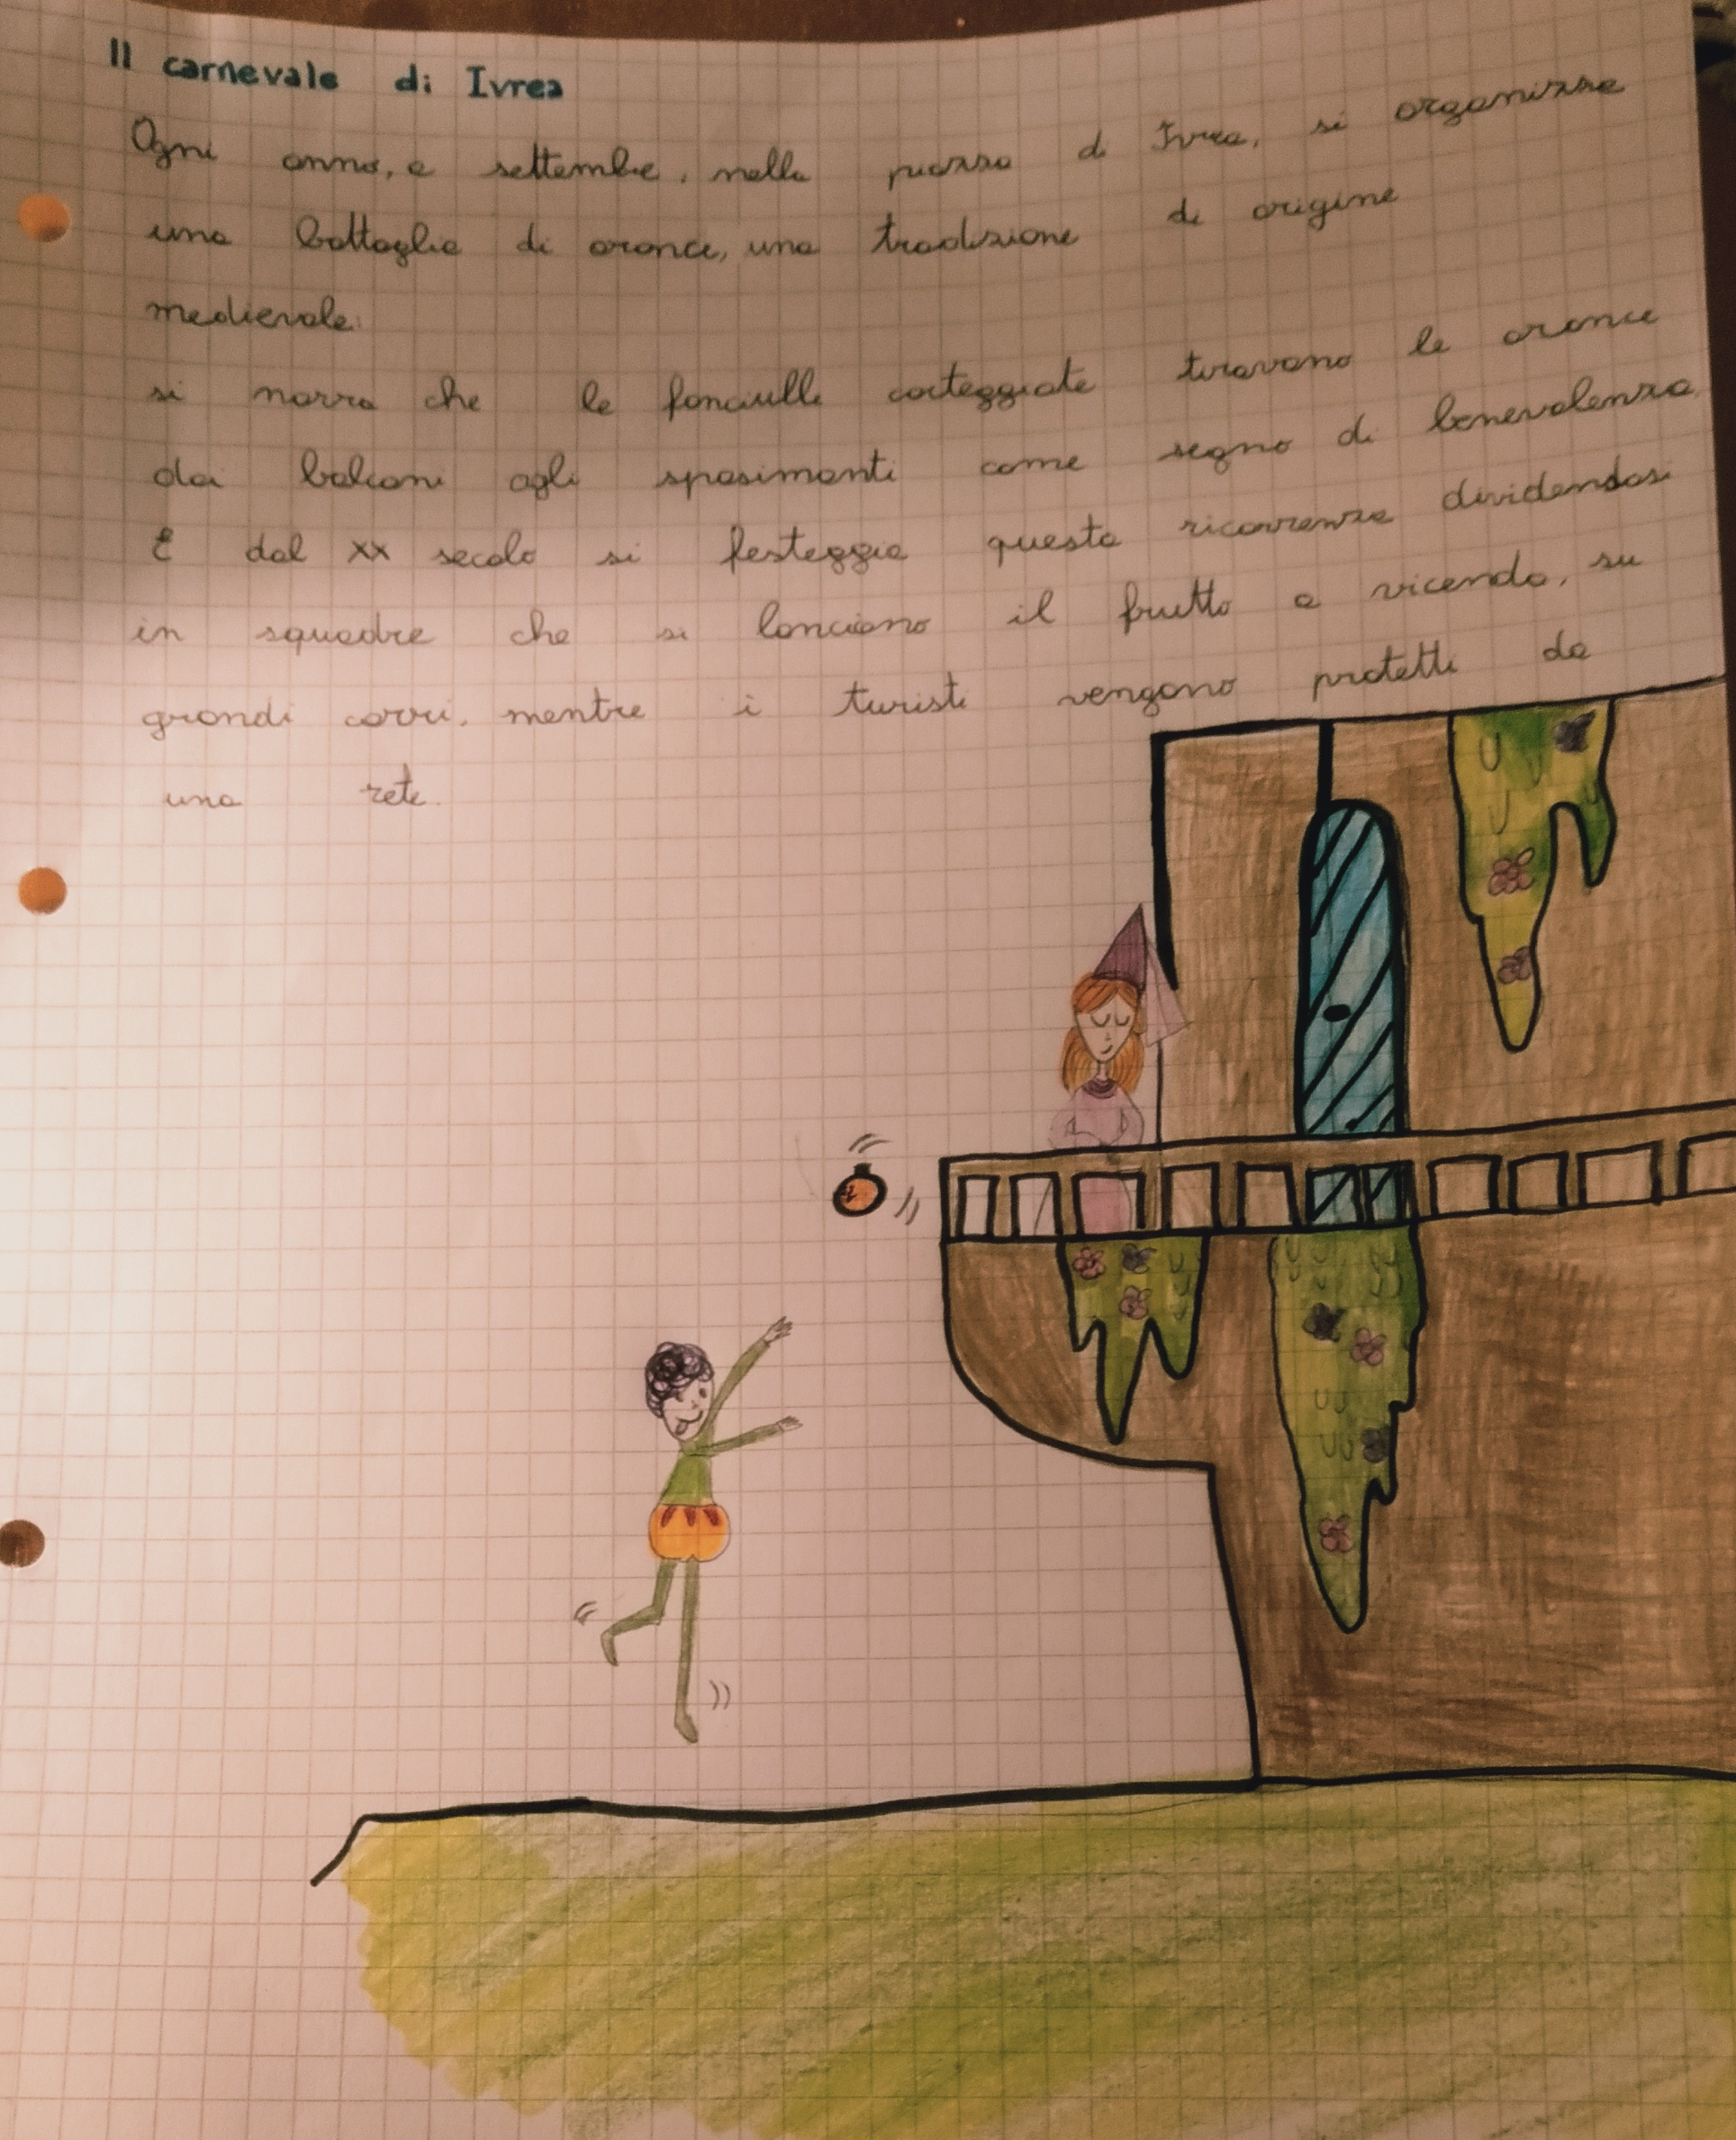 Il carnevale di Ivrea
Ogni anno, a settembre, nella piazza di Ivrea, si organizza
una battaglia di arance, una tradizione di origine
medievale.
si narra che le fanciulle corteggiate tiravano le arance
dai balconi agli spasimanti come segno di benevolenza.
E dal XX secolo si festeggia questa ricorrenza dividendosi
in squadre che si lanciano il frutto a vicenda, su
grandi carri, mentre i turisti vengono protetti da
una rete.